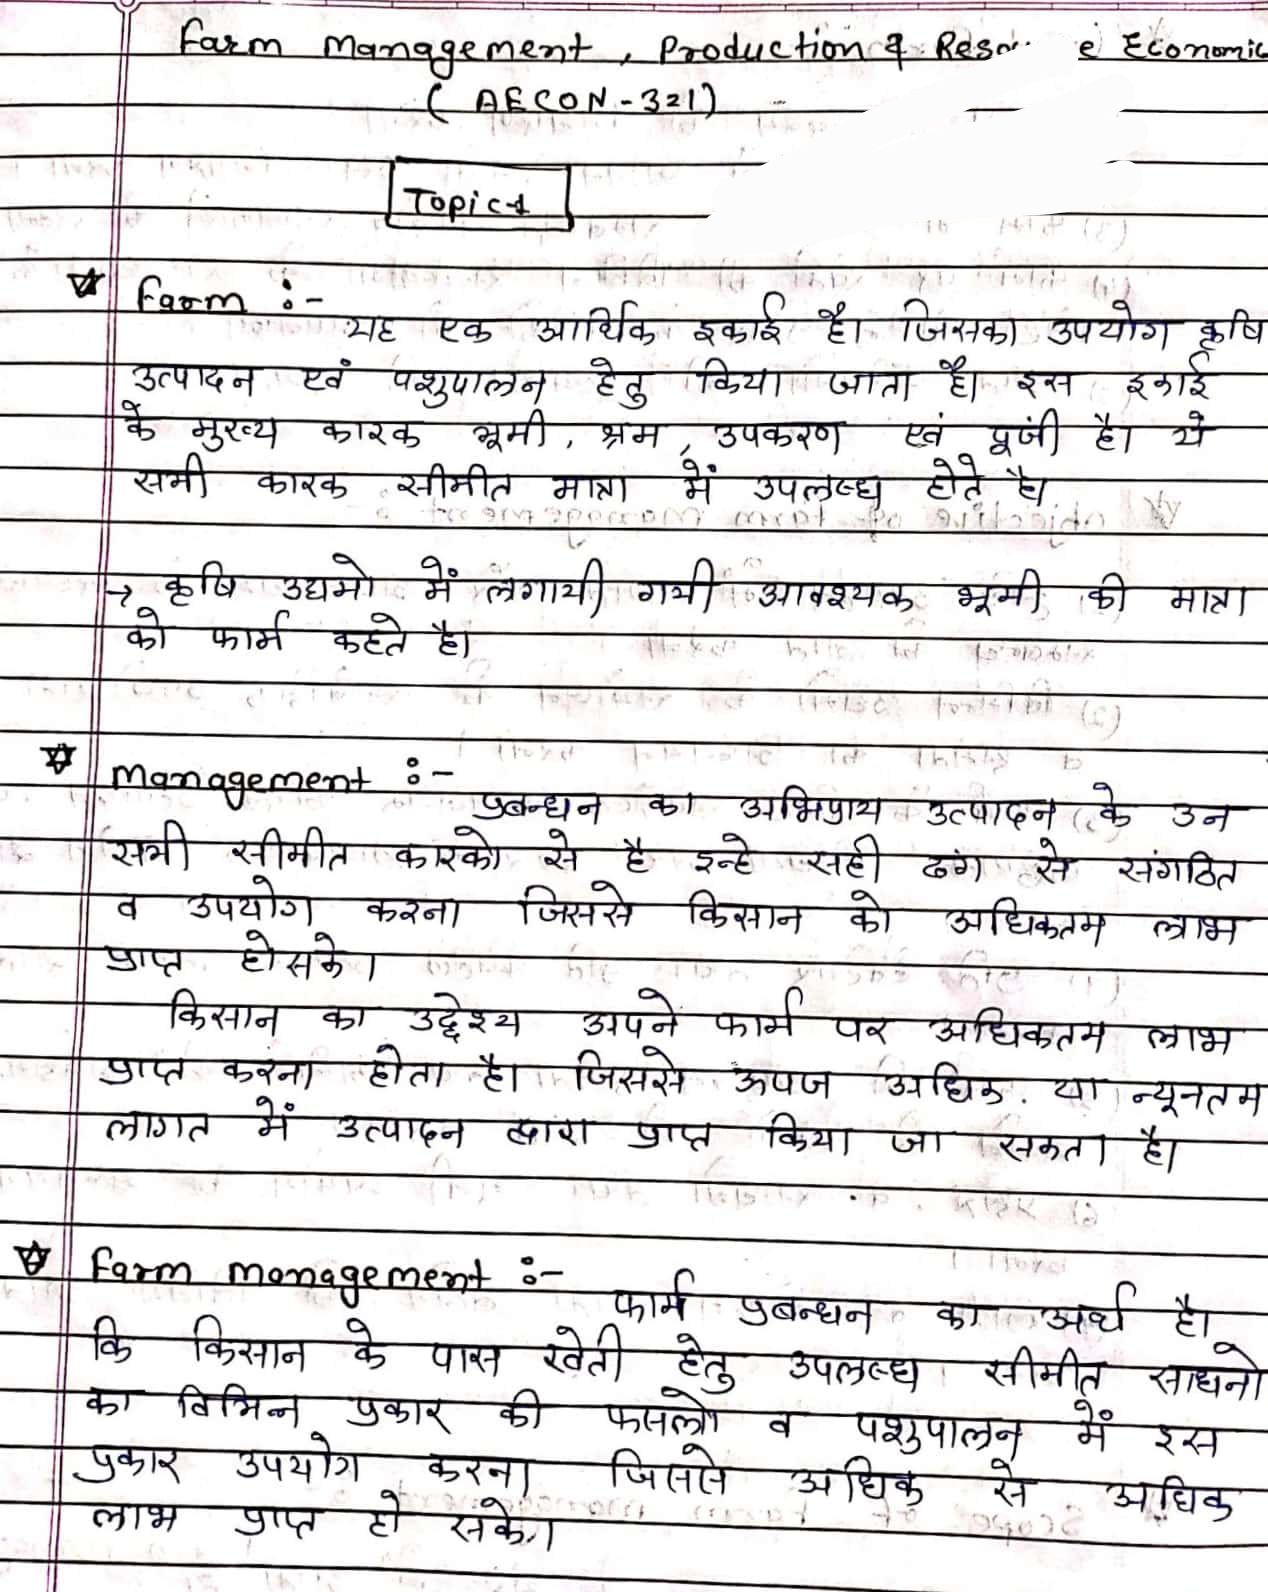 Farm Management, Production & Economic
(AECON-321)
Topic-1
Farm :-
यह एक आर्थिक इकाई है। जिसका उपयोग कृषि
उत्पादन एवं पशुपालन हेतु किया जाता है। इस इकाई
के मुख्य कारक भूमी, श्रम, उपकरण एवं पूंजी है। ये
सभी कारक सीमीत मात्रा में उपलब्ध होते है।
→ कृषि उद्यमो में लगायी गयी आवश्यक भूमी की मात्रा
को फार्म कहते है।
Management :-
प्रबन्धन का अभिप्राय उत्पादन के उन
सभी सीमीत कारको से है इन्हे सही ढंग से संगठित
व उपयोग करना जिससे किसान को अधिकतम लाभ
प्राप्त हो सके।
किसान का उद्देश्य अपने फार्म पर अधिकतम लाभ
प्राप्त करना होता है। जिससे ऊपज अधिक या न्यूनतम
लागत में उत्पादन द्वारा प्राप्त किया जा सकता है।
Farm management :-
फार्म प्रबन्धन का अर्थ है।
कि किसान के पास खेती हेतु उपलब्ध सीमीत साधनो
का विभिन्न प्रकार की फसलो व पशुपालन में इस
प्रकार उपयोग करना जिससे अधिक से अधिक
लाभ प्राप्त हो सके।